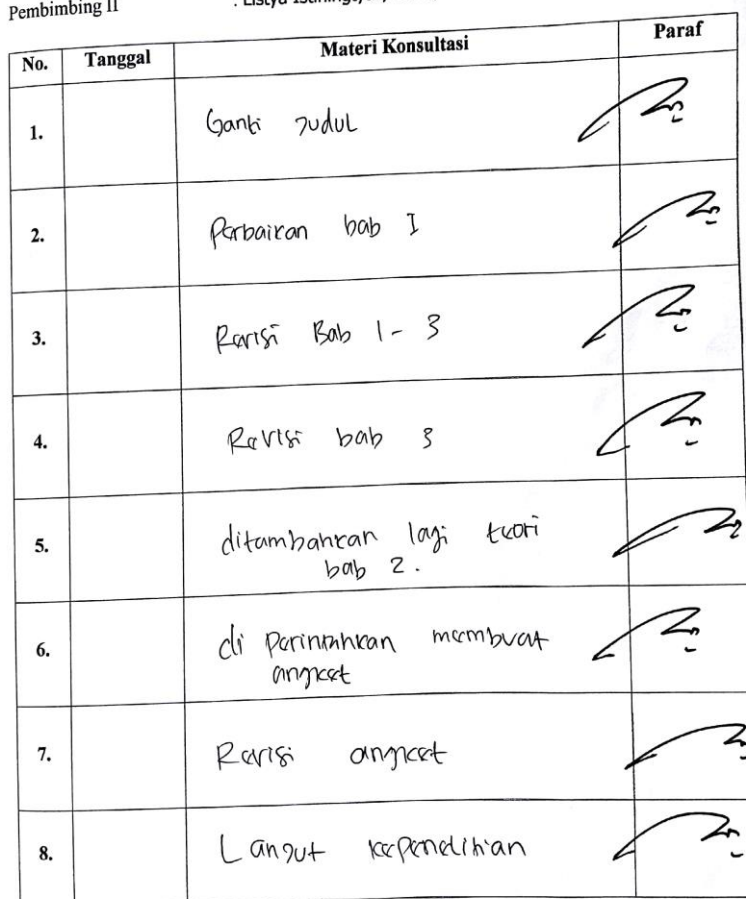 Pembimbing II
No. Tanggal Materi Konsultasi Paraf
1. Ganti Judul
2. Perbaikan bab I
3. Revisi Bab 1 - 3
4. Revisi bab 3
5. ditambahkan lagi teori
bab 2.
6. di perintahkan membuat
angket
7. Revisi angket
8. Lanjut kepenelitian